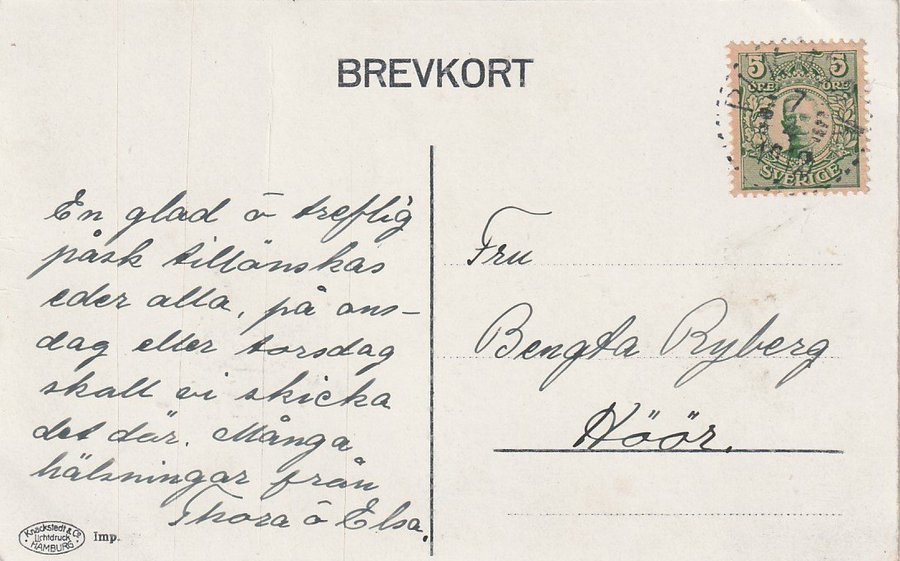 BREVKORT
5 5
ÖRE ÖRE
SVERIGE
En glad ö treflig
påsk tillönskas
eder alla, på ons-
dag eller torsdag
skall vi skicka
det där. Många
hälsningar från
Thora ö Elsa.
Fru
Bengta Ryberg
Höör.
Knackstedt & Co.
Lichtdruck
HAMBURG
Imp.